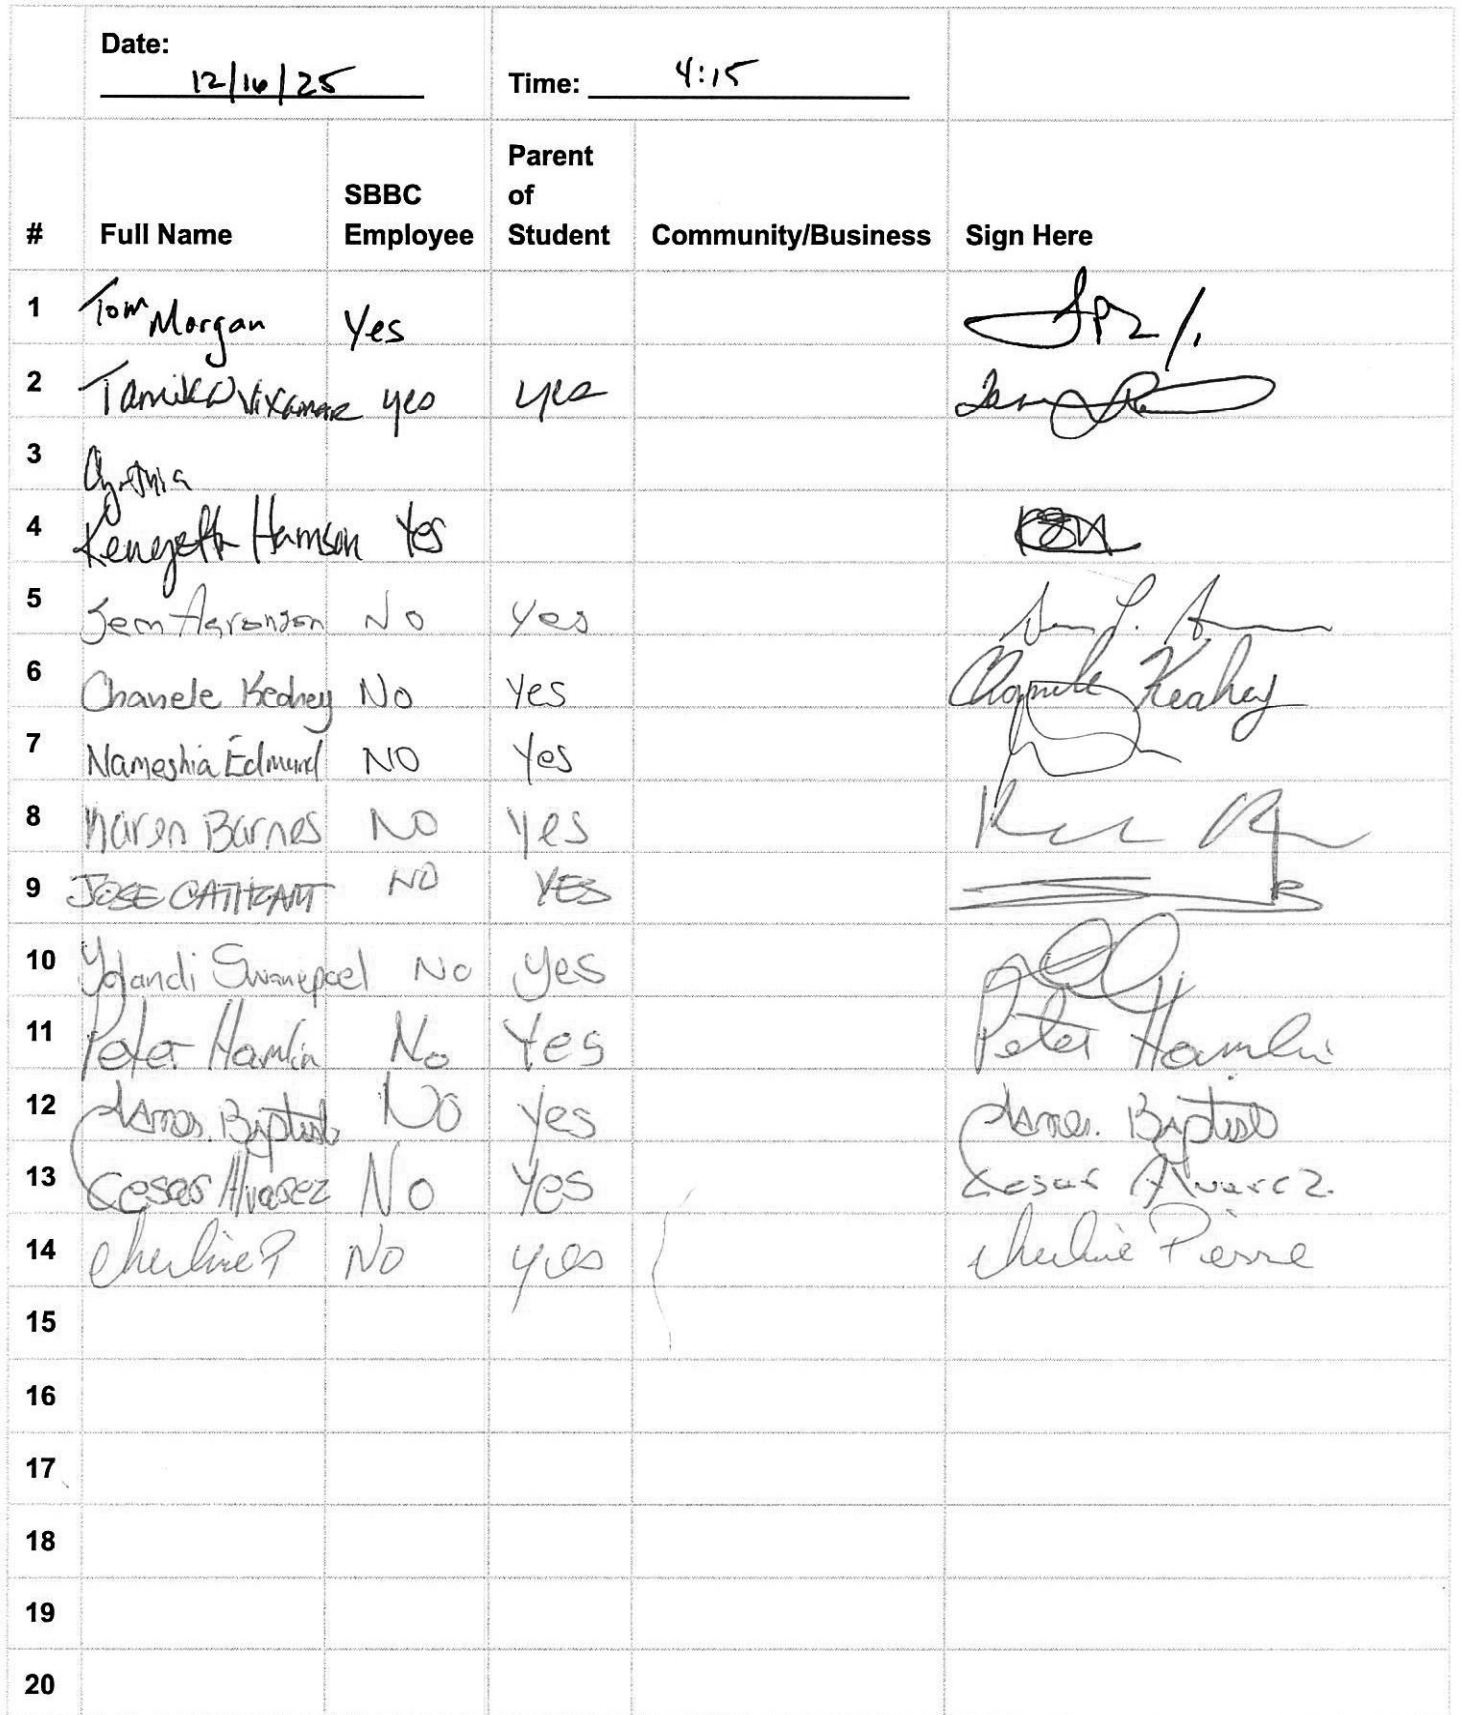 Date:
12/16/25
Time: 4:15
# Full Name SBBC Employee Parent of Student Community/Business Sign Here
1 Tom Morgan Yes
2 Tamika Vixamar yes yes
3 Cynthia
4 Kenyetta Hamson Yes
5 Aaronson No Yes
6 Chanele Keahey No Yes Chanele Keahey
7 Nameshia Edmund NO Yes
8 Karen Barnes NO Yes
9 JOSE CATHCART NO YES
10 Yolandi Swanepoel No yes
11 Peter Hamlin No Yes Peter Hamlin
12 Baptiste No yes Baptiste
13 Cesar Alvarez No Yes Cesar Alvarez.
14 Cherline P NO yes Cherline Pierre
15
16
17
18
19
20